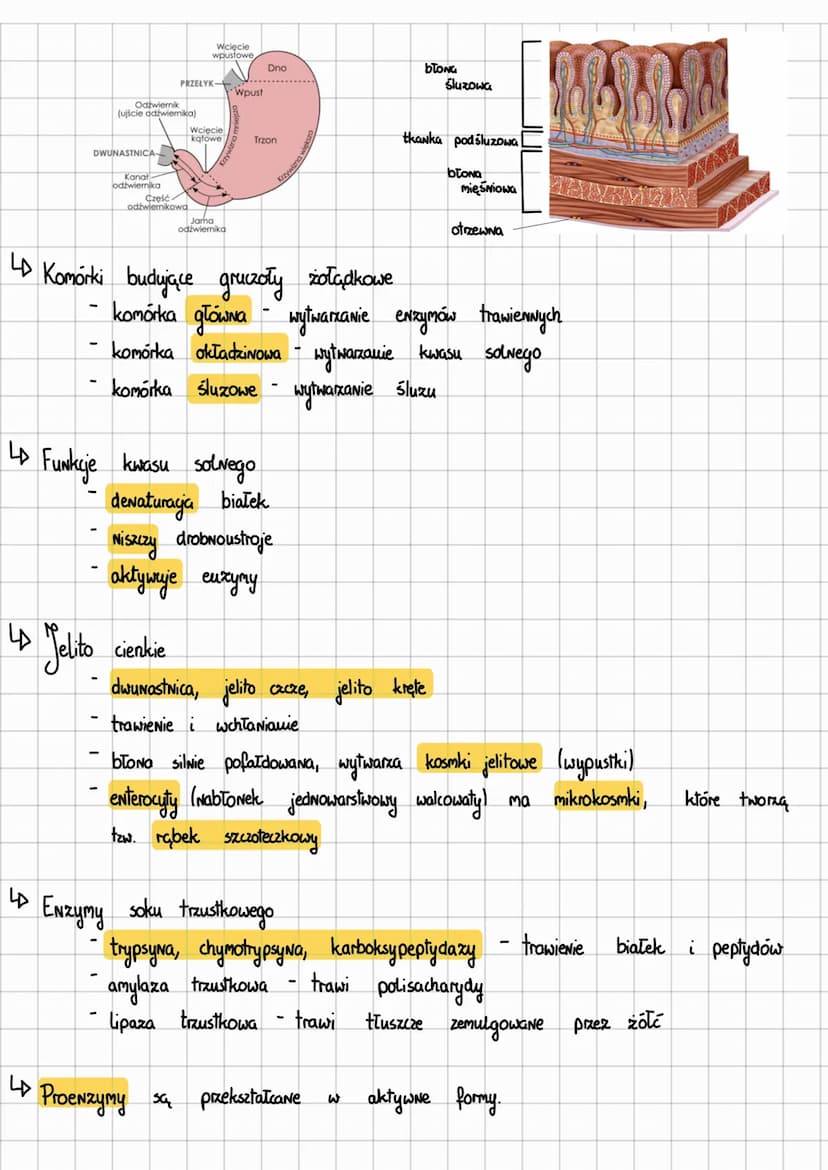 Wcięcie
wpustowe
Dno
PRZEŁYK
Wpust
Odźwiernik
(ujście odźwiernika)
Wcięcie
kątowe
Krzywizna mniejsza
Trzon
Krzywizna większa
DWUNASTNICA
Kanał
odźwiernika
Część
odźwiernikowa
Jama
odźwiernika
błona
śluzowa
tkanka podśluzowa
błona
mięśniowa
otrzewna
↳ Komórki budujące gruczoły żołądkowe
- komórka główna - wytwarzanie enzymów trawiennych
- komórka okładzinowa - wytwarzanie kwasu solnego
- komórka śluzowe - wytwarzanie śluzu
↳ Funkcje kwasu solnego
- denaturacja białek
- niszczy drobnoustroje
- aktywuje enzymy
↳ Jelito cienkie
- dwunastnica, jelito czcze, jelito kręte
- trawienie i wchłanianie
- błona silnie pofałdowana, wytwarza kosmki jelitowe (wypustki)
- enterocyty (nabłonek jednowarstwowy walcowaty) ma mikrokosmki, które tworzą
tzw. rąbek szczoteczkowy
↳ Enzymy soku trzustkowego
- trypsyna, chymotrypsyna, karboksypeptydazy - trawienie białek i peptydów
- amylaza trzustkowa - trawi polisacharydy
- lipaza trzustkowa - trawi tłuszcze zemulgowane przez żółć
↳ Proenzymy są przekształcane w aktywne formy.